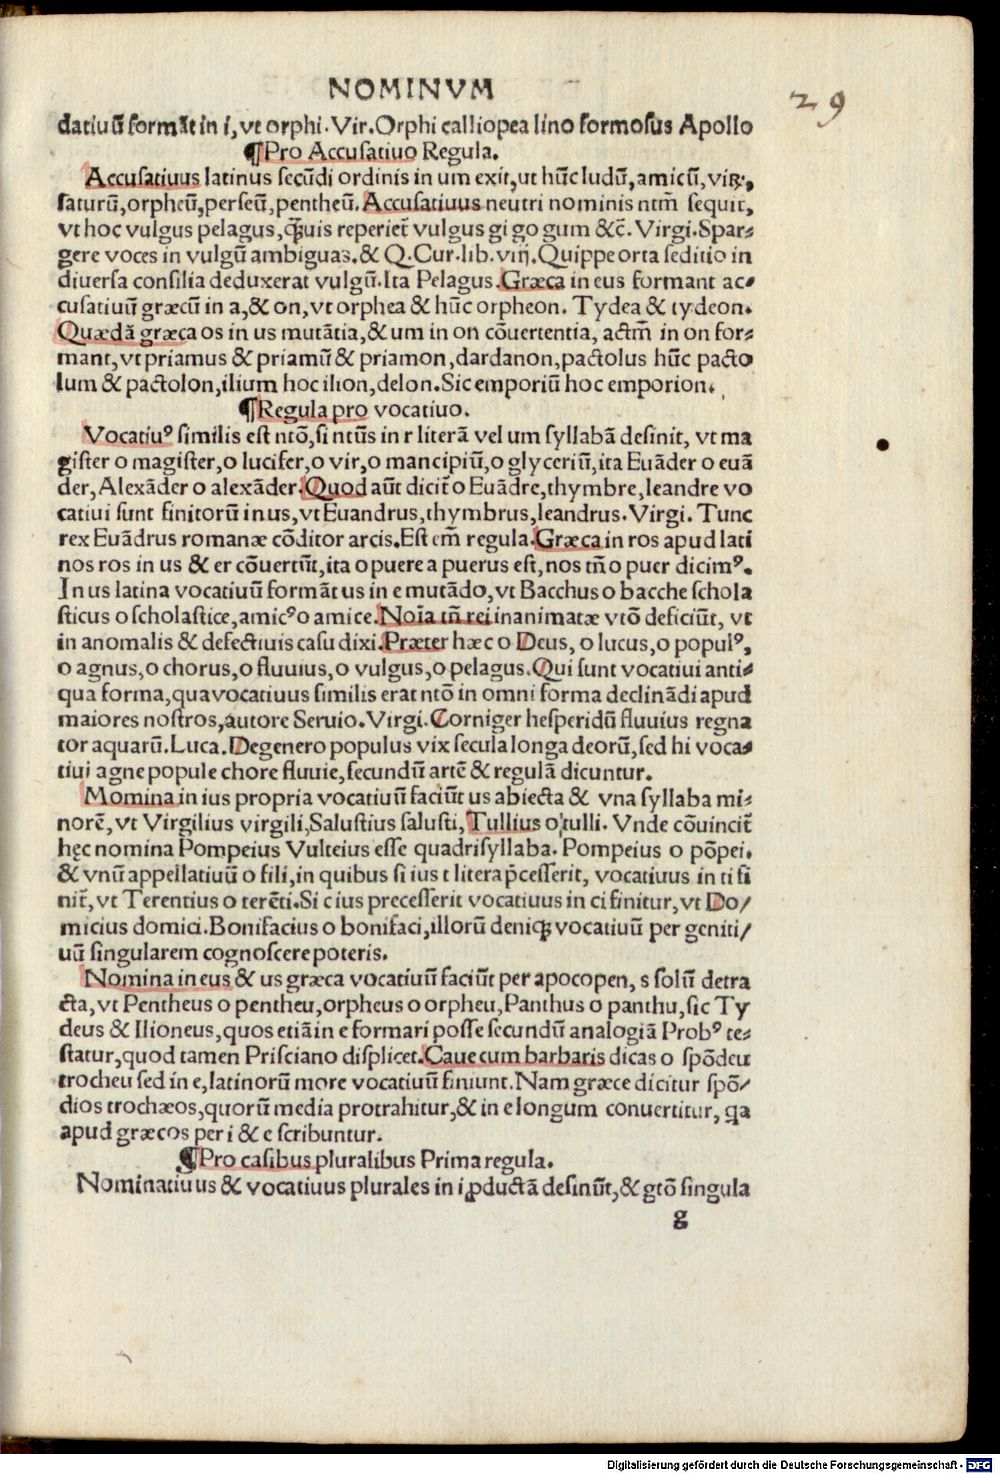 NOMINVM
29
datiuū formāt in i, vt orphi. Vir. Orphi calliopea lino formosus Apollo
¶Pro Accusatiuo Regula.
Accusatiuus latinus secūdi ordinis in um exit, ut hūc ludū, amicū, virꝝ,
saturū, orpheū, perseū, pentheū. Accusatiuus neutri nominis ntm̄ sequit,
vt hoc vulgus pelagus, qᷓuis reperiet᷑ vulgus gi go gum &c̄. Virgi. Spar-
gere voces in vulgū ambiguas. & Q. Cur. lib. viij. Quippe orta seditio in
diuersa consilia deduxerat vulgū. Ita Pelagus. Græca in eus formant ac-
cusatiuū græcū in a, & on, vt orphea & hūc orpheon. Tydea & tydeon.
Quædā græca os in us mutātia, & um in on cōuertentia, actm̄ in on for-
mant, vt priamus & priamū & priamon, dardanon, pactolus hūc pacto
lum & pactolon, ilium hoc ilion, delon. Sic emporiū hoc emporion.
¶Regula pro vocatiuo.
Vocatiuꝰ similis est ntō, si ntūs in r literā vel um syllabā desinit, vt ma
gister o magister, o lucifer, o vir, o mancipiū, o glyceriū, ita Euāder o euā
der, Alexāder o alexāder. Quod aūt dicit᷑ o Euādre, thymbre, leandre vo
catiui sunt finitorū in us, vt Euandrus, thymbrus, leandrus. Virgi. Tunc
rex Euādrus romanæ cōditor arcis. Est em̄ regula. Græca in ros apud lati
nos ros in us & er cōuertūt, ita o puere a puerus est, nos tn̄ o puer dicimꝰ.
In us latina vocatiuū formāt us in e mutādo, vt Bacchus o bacche schola
sticus o scholastice, amicꝰ o amice. Noīa tn̄ rei inanimatæ vtō deficiūt, vt
in anomalis & defectiuis casu dixi. Præter hæc o Deus, o lucus, o populꝰ,
o agnus, o chorus, o fluuius, o vulgus, o pelagus. Qui sunt vocatiui anti-
qua forma, qua vocatiuus similis erat ntō in omni forma declināди apud
maiores nostros, autore Seruio. Virgi. Corniger hesperidū fluuius regna
tor aquarū. Luca. Degenero populus vix secula longa deorū, sed hi voca-
tiui agne popule chore fluuie, secundū artē & regulā dicuntur.
Momina in ius propria vocatiuū faciūt us abiecta & vna syllaba mi-
norē, vt Virgilius virgili, Salustius salusti, Tullius o tulli. Vnde cōuincit᷑
hęc nomina Pompeius Vulteius esse quadrisyllaba. Pompeius o pōpei.
& vnū appellatiuū o fili, in quibus si ius t litera p̄cesserit, vocatiuus in ti fi
nit᷑, vt Terentius o terēti. Si c ius precesserit vocatiuus in ci finitur, vt Do/
micius domici. Bonifacius o bonifaci, illorū deniqꝫ vocatiuū per geniti/
uū singularem cognoscere poteris.
Nomina in eus & us græca vocatiuū faciūt per apocopen, s solū detra
cta, vt Pentheus o pentheu, orpheus o orpheu, Panthus o panthu, sic Ty
deus & Ilioneus, quos etiā in e formari posse secundū analogiā Probꝰ te-
statur, quod tamen Prisciano displicet. Caue cum barbaris dicas o spōdeu
trocheu sed in e, latinorū more vocatiuū finiunt. Nam græce dicitur spō/
dios trochæos, quorū media protrahitur, & in e longum conuertitur, qa
apud græcos per i & e scribuntur.
¶Pro casibus pluralibus Prima regula.
Nominatiuus & vocatiuus plurales in i ꝓductā desinūt, & gtō singula
g
Digitalisierung gefördert durch die Deutsche Forschungsgemeinschaft - DFG